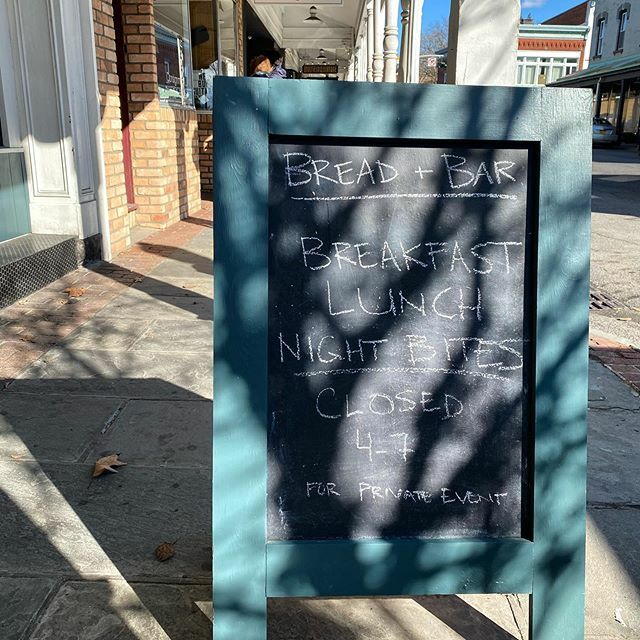 BREAD + BAR
BREAKFAST
LUNCH
NIGHT BITES
CLOSED
4-7
FOR PRIVATE EVENT